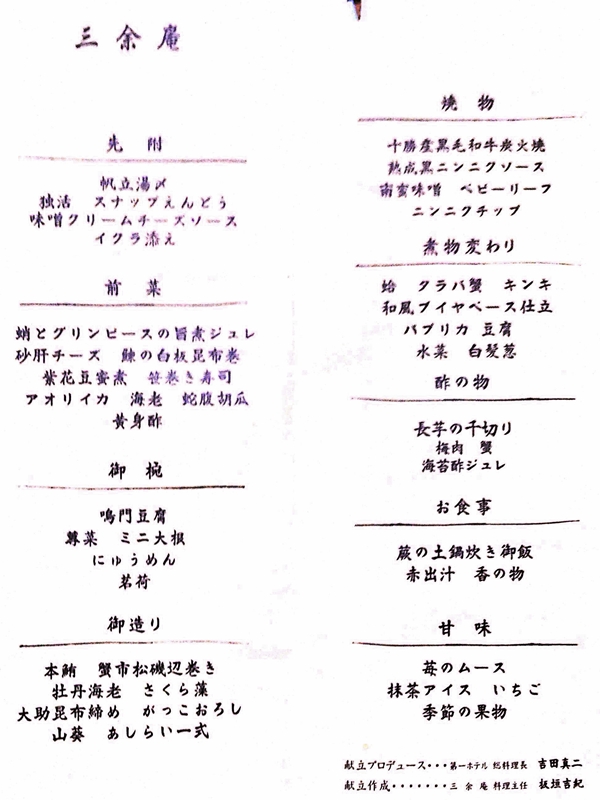 三余庵
先附
帆立湯〆
独活 スナップえんどう
味噌クリームチーズソース
イクラ添え
前菜
蛸とグリンピースの旨煮ジュレ
砂肝チーズ 鰊の白板昆布巻
紫花豆蜜煮 笹巻き寿司
アオリイカ 海老 蛇腹胡瓜
黄身酢
御椀
鳴門豆腐
蓴菜 ミニ大根
にゅうめん
茗荷
御造り
本鮪 蟹市松磯辺巻き
牡丹海老 さくら藻
大助昆布締め がっこおろし
山葵 あしらい一式
焼物
十勝産黒毛和牛炭火焼
熟成黒ニンニクソース
南蛮味噌 ベビーリーフ
ニンニクチップ
煮物変わり
蛤 タラバ蟹 キンキ
和風ブイヤベース仕立
パプリカ 豆腐
水菜 白髪葱
酢の物
長芋の千切り
梅肉 蟹
海苔酢ジュレ
お食事
蕨の土鍋炊き御飯
赤出汁 香の物
甘味
苺のムース
抹茶アイス いちご
季節の果物
献立プロデュース・・・第一ホテル 総料理長 吉田真二
献立作成・・・・・・・三余庵 料理主任 板垣吉紀